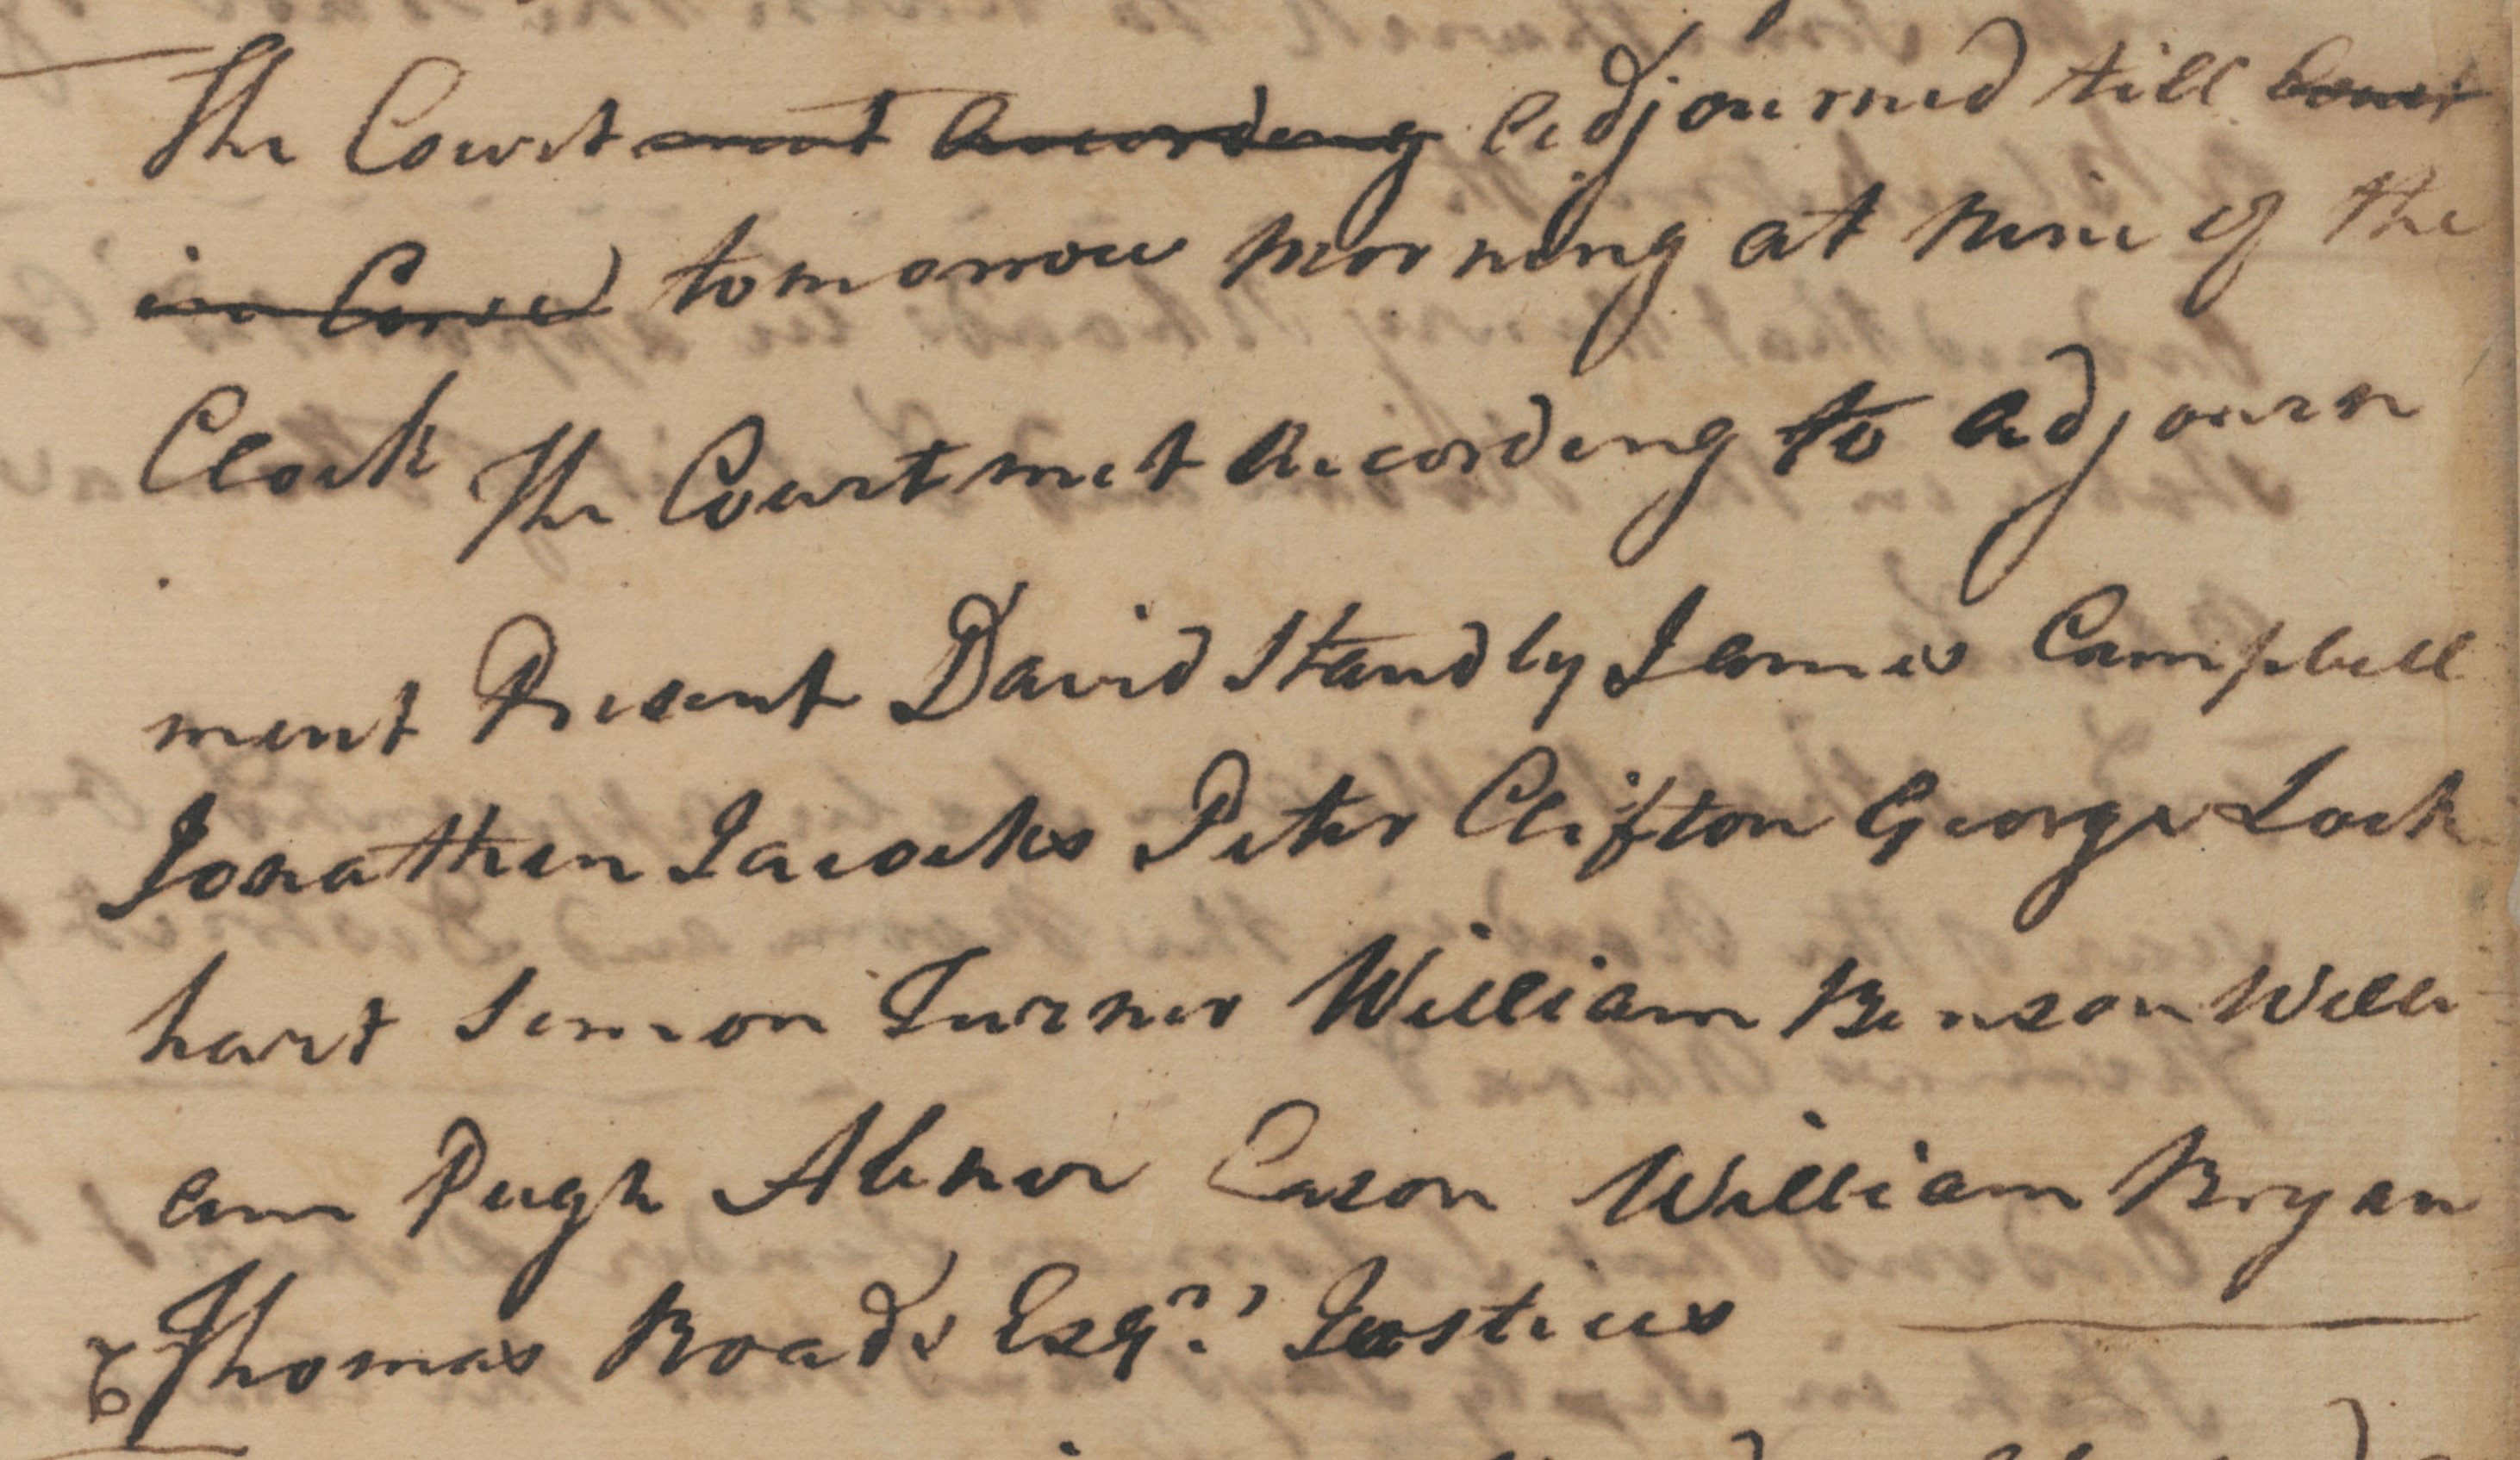 The Court met According adjourned till Court
in Cors tomorrow Morning at Nine of the
Clock The Court met According to Adjourn
ment Present David Standly James Campbell
Jonathan Jacocks Peter Clifton George Lock
hart Simon Turner William Benson Willi
am Pugh Abner Eason William Bryan
& Thomas Roads Esqrs Justices